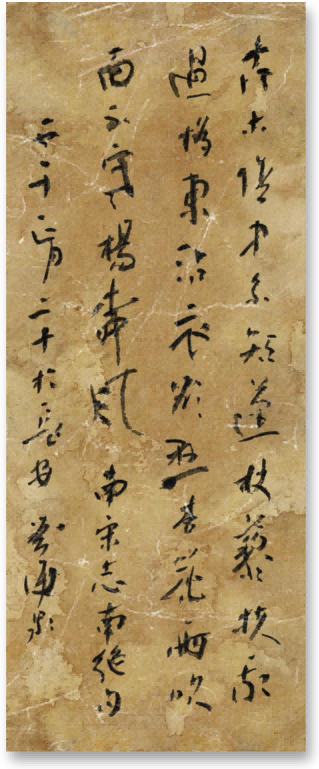 古木陰中系短蓬杖藜扶我
過橋東沾衣欲濕杏花雨吹
面不寒楊柳風 南宋志南絕句
二十於長安